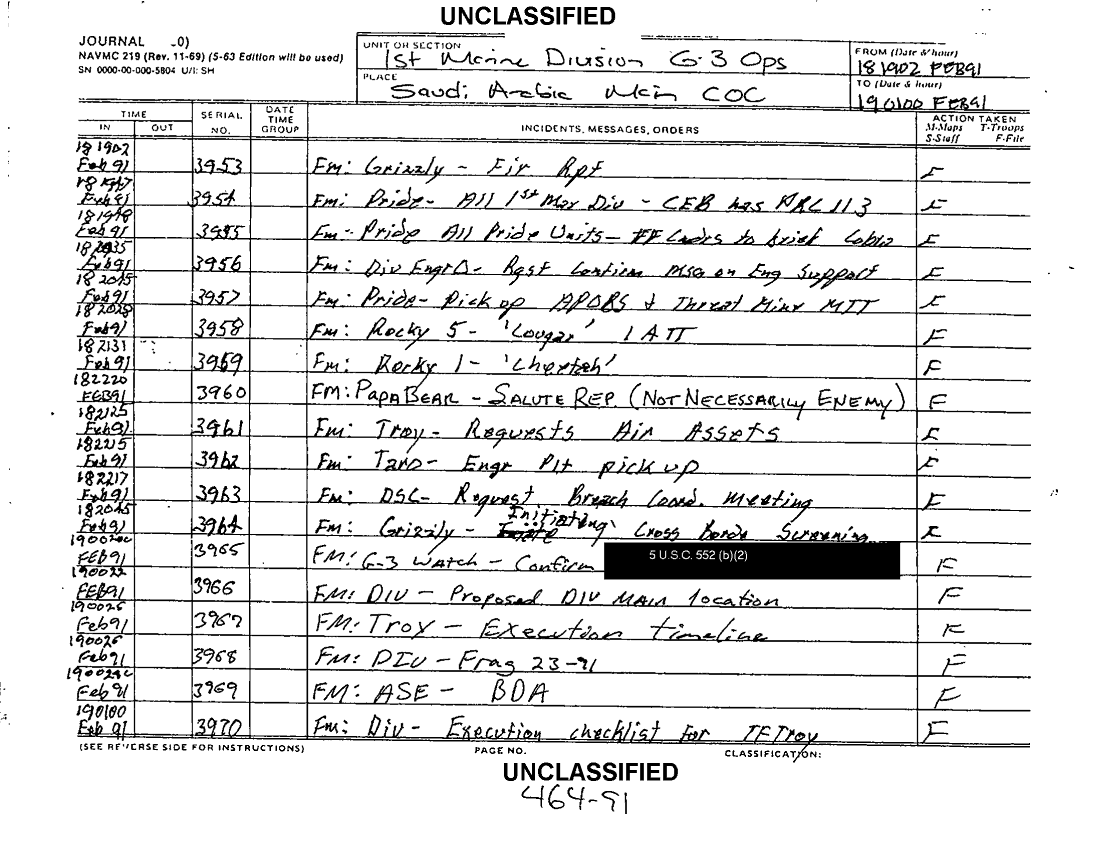 UNCLASSIFIED
JOURNAL
NAVMC 219 (Rev. 11-69) (5-63 Edition will be used)
SN 0000-00-000-5804 U/I: SH
UNIT OR SECTION
1st Marine Division G-3 Ops
PLACE
Saudi Arabia Main COC
FROM (Date & hour)
181902 FEB91
TO (Date & hour)
190100 FEB91
TIME
IN OUT
SERIAL NO.
DATE TIME GROUP
INCIDENTS, MESSAGES, ORDERS
ACTION TAKEN
M-Maps T-Troops
S-Staff F-File
181902
Feb 91 3953 Fm: Grizzly - Fir Rpt F
Feb 91 3954 Fm: Pride - All 1st Mar Div - CEB has 113 F
Feb 91 3955 Fm - Pride All Pride Units - to brief F
Feb 91 3956 Fm: Div Engr - Rqst Confirm Msg on Eng Support F
182015
Feb 91 3957 Fm: Pride - Pick up APOBS & Threat Mine MTT F
182028
Feb 91 3958 Fm: Rocky 5 - 'Cougar' F
182131
Feb 91 3959 Fm: Rocky 1 - 'Cheetah' F
182220
FEB91 3960 FM: PAPA BEAR - SALUTE REP. (NOT NECESSARILY ENEMY) F
182125
Feb 91 3961 Fm: Troy - Requests Air Assets F
182215
Feb 91 3962 Fm: Taro - Engr Plt pick up F
182217
Feb 91 3963 Fm: DSC - Request Breach Coord. Meeting F
182045
Feb 91 3964 Fm: Grizzly - Initiating Cross Border Screening F
FEB91 3965 FM: G-3 Watch - Confirm 5 U.S.C. 552 (b)(2) F
190022
FEB91 3966 FM: DIV - Proposed DIV MAIN location F
190026
Feb 91 3967 FM: Troy - Execution timeline F
190026
Feb 91 3968 Fm: DIV - Frag 23-91 F
Feb 91 3969 FM: ASE - BDA F
190100
Feb 91 3970 Fm: Div - Execution checklist for TF Troy F
(SEE REVERSE SIDE FOR INSTRUCTIONS)
PAGE NO.
CLASSIFICATION:
UNCLASSIFIED
464-91